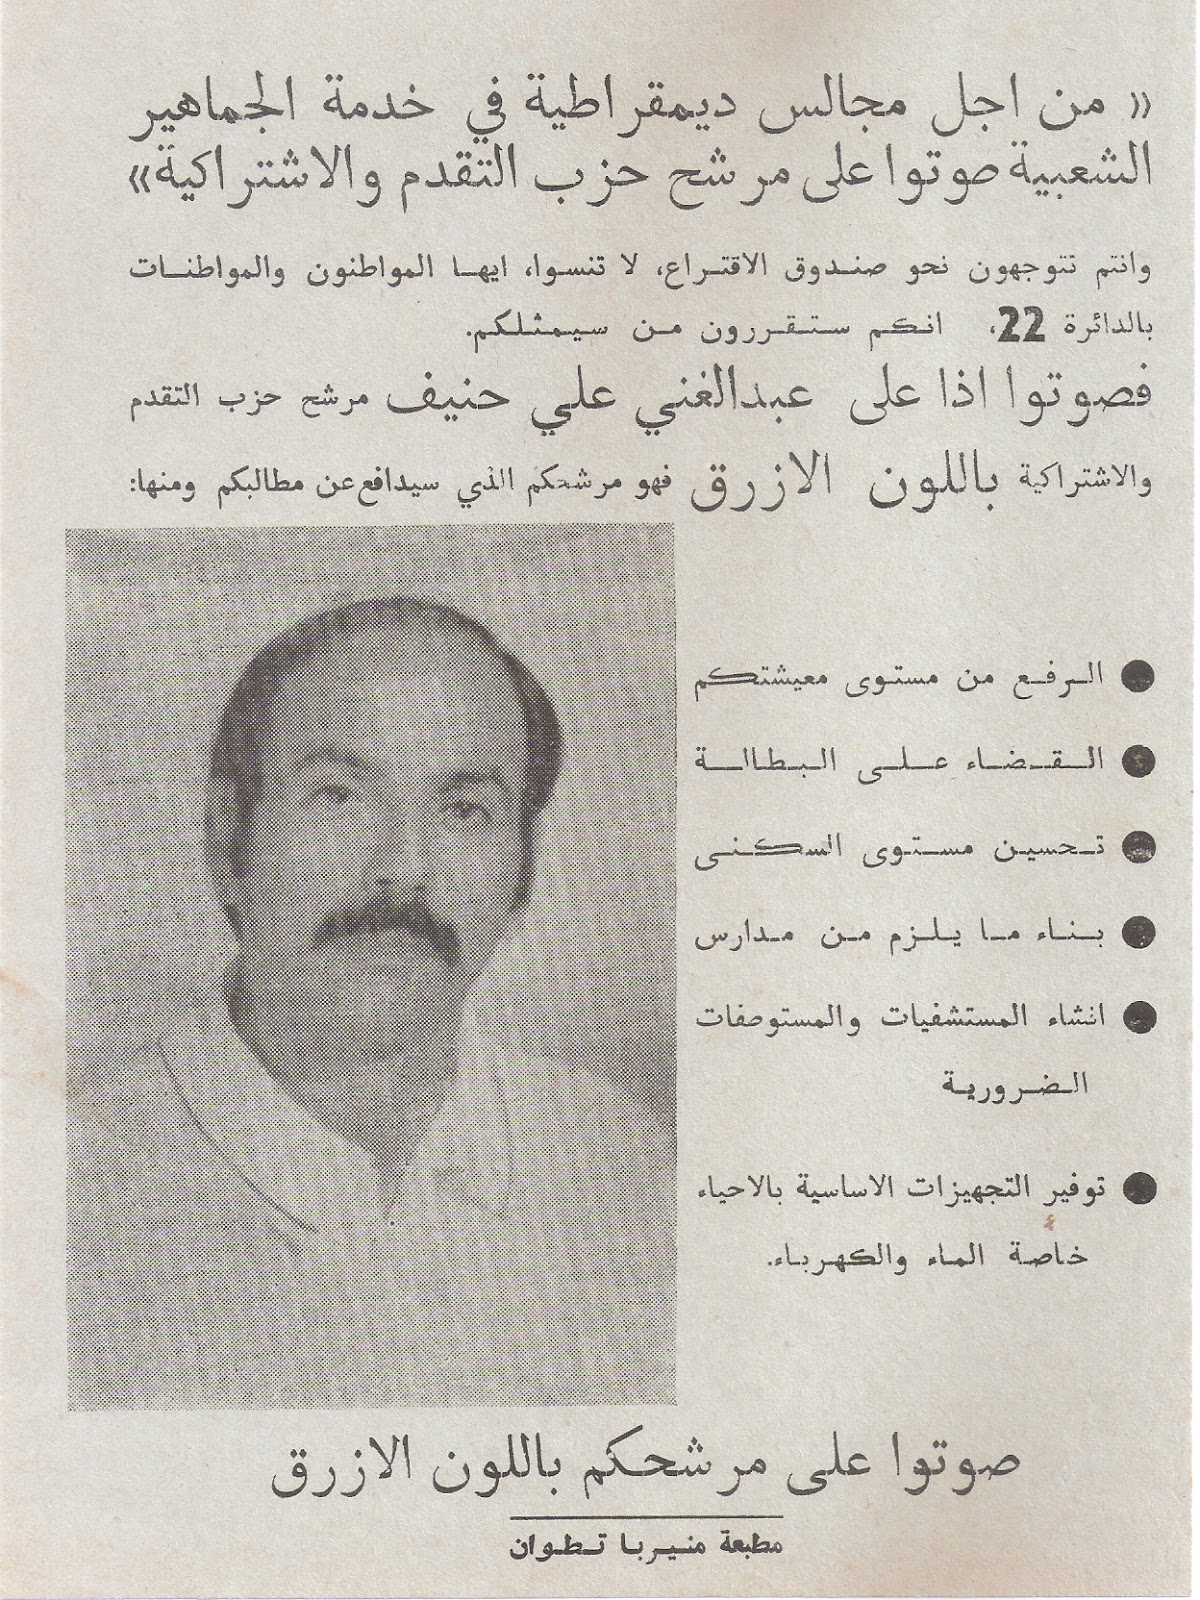 « من اجل مجالس ديمقراطية في خدمة الجماهير
الشعبية صوتوا على مرشح حزب التقدم والاشتراكية»
وانتم تتوجهون نحو صندوق الاقتراع، لا تنسوا، ايها المواطنون والمواطنات
بالدائرة 22، انكم ستقررون من سيمثلكم.
فصوتوا اذا على عبدالغني علي حنيف مرشح حزب التقدم
والاشتراكية باللون الازرق فهو مرشحكم الذي سيدافع عن مطالبكم ومنها:
● الرفع من مستوى معيشتكم
● القضاء على البطاالة
● تحسين مستوى السكنى
● بناء ما يلزم من مدارس
● انشاء المستشفيات والمستوصفات
الضرورية
● توفير التجهيزات الاساسية بالاحياء
خاصة الماء والكهرباء.
صوتوا على مرشحكم باللون الازرق
مطبعة منيربا تطوان